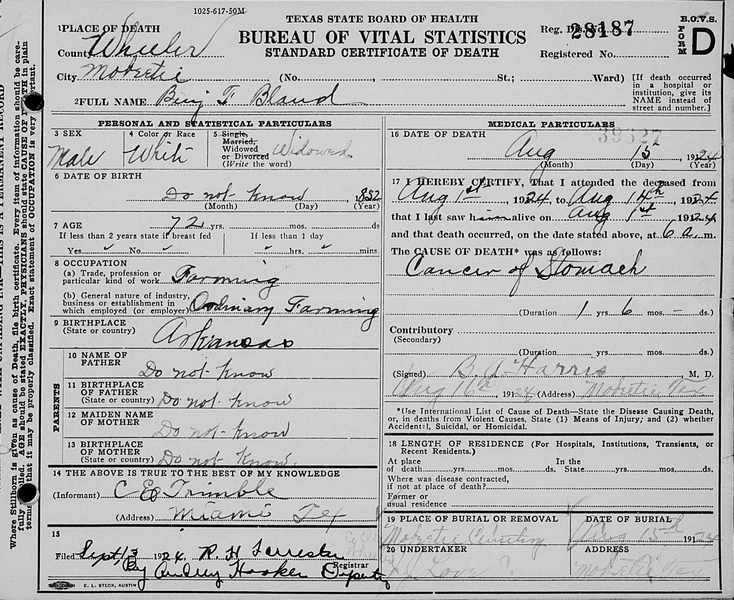 1025-617-50M
TEXAS STATE BOARD OF HEALTH
BUREAU OF VITAL STATISTICS
STANDARD CERTIFICATE OF DEATH
Reg. Dis. No. 28187
Registered No.
B.O.V.S.
FORM D
1 PLACE OF DEATH
County Wheeler
City Mobeetie (No. St.; Ward)
[If death occurred in a hospital or institution, give its NAME instead of street and number.]
2 FULL NAME Benj F Bland
PERSONAL AND STATISTICAL PARTICULARS
3 SEX Male
4 Color or Race White
5 Single, Married, Widowed or Divorced (Write the word) Widowed
6 DATE OF BIRTH
Do not know 1852
(Month) (Day) (Year)
7 AGE 72 yrs. mos. ds
If less than 2 years state if breast fed
Yes No
If less than 1 day
hrs. mins
8 OCCUPATION
(a) Trade, profession or particular kind of work Farming
(b) General nature of industry, business or establishment in which employed (or employer) Ordinary Farming
9 BIRTHPLACE
(State or country) Arkansas
PARENTS
10 NAME OF FATHER Do not know
11 BIRTHPLACE OF FATHER (State or country) Do not know
12 MAIDEN NAME OF MOTHER Do not know
13 BIRTHPLACE OF MOTHER (State or country) Do not know.
14 THE ABOVE IS TRUE TO THE BEST OF MY KNOWLEDGE
(Informant) C E Trimble
(Address) Miami Tex
15
Filed Sept 13 1924 R H Forrester
By Audrey Hooker Deputy
Registrar
E. L. STECK, AUSTIN
MEDICAL PARTICULARS
39327
16 DATE OF DEATH
Aug 15 1924
(Month) (Day) (Year)
17 I HEREBY CERTIFY, That I attended the deceased from
Aug 1st 1924 to Aug 14th 1924
that I last saw him alive on Aug 1st 1924
and that death occurred, on the date stated above, at 6 a. m.
The CAUSE OF DEATH* was as follows:
Cancer of Stomach
(Duration) 1 yrs 6 mos — ds.)
Contributory
(Secondary)
(Duration) yrs. mos. ds.)
(Signed) B. A. Harris M. D.
Aug 16th 1924 (Address) Mobeetie Tex
*Use International List of Cause of Death—State the Disease Causing Death, or, in deaths from Violent Causes, State (1) Means of Injury; and (2) whether Accidental, Suicidal, or Homicidal.
18 LENGTH OF RESIDENCE (For Hospitals, Institutions, Transients, or Recent Residents.)
At place of death yrs. mos. ds. In the State yrs. mos. ds.
Where was disease contracted, if not at place of death?
Former or usual residence
19 PLACE OF BURIAL OR REMOVAL
Mobeetie Cemetery
DATE OF BURIAL
Aug 15th 1924
20 UNDERTAKER
Love
ADDRESS
Mobeetie Tex